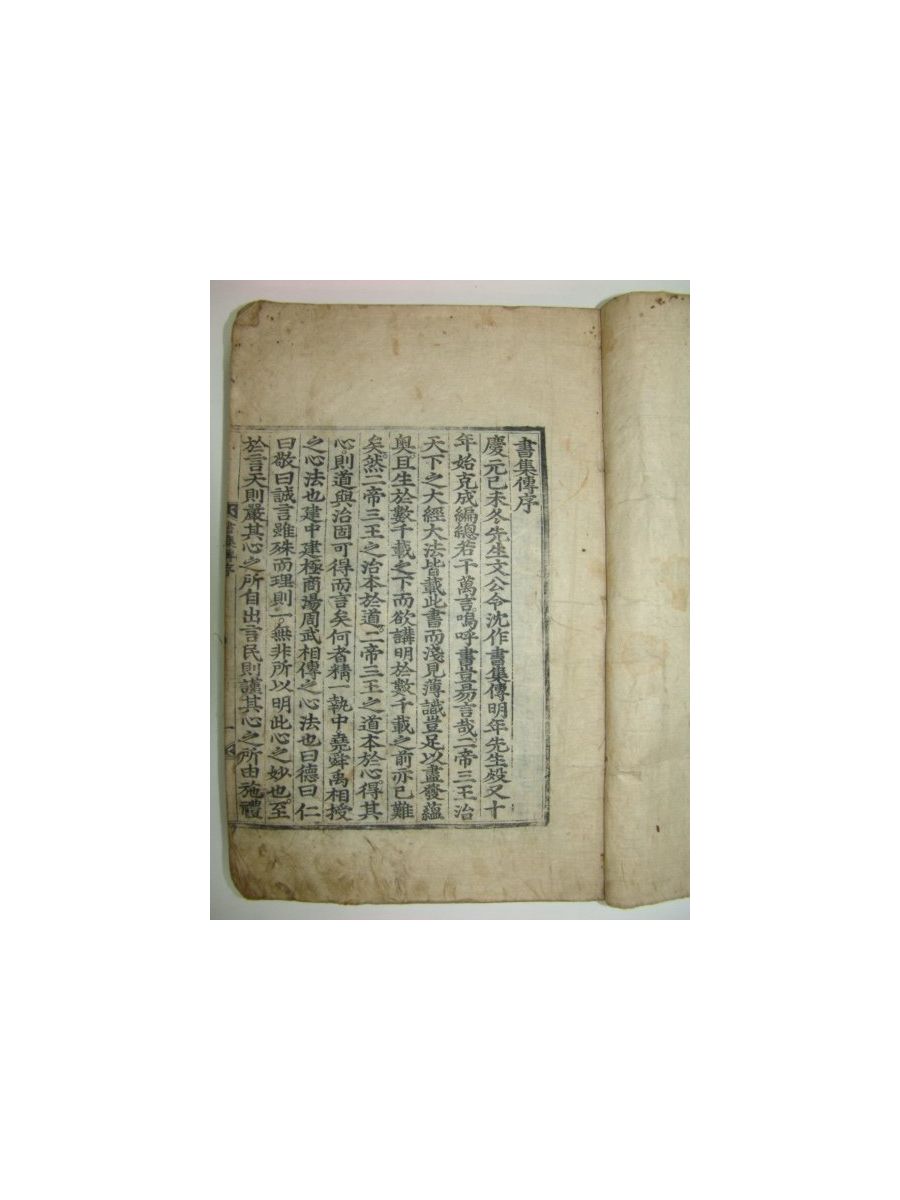 書集傳序
慶元己未冬先生文公令沈作書集傳明年先生歿又十
年始克成編總若干萬言嗚呼書豈易言哉二帝三王治
天下之大經大法皆載此書而淺見薄識豈足以盡發蘊
奧且生於數千載之下而欲講明於數千載之前亦已難
矣然二帝三王之治本於道二帝三王之道本於心得其
心則道與治固可得而言矣何者精一執中堯舜禹相授
之心法也建中建極商湯周武相傳之心法也曰德曰仁
曰敬曰誠言雖殊而理則一無非所以明此心之妙也至
於言天則嚴其心之所自出言民則謹其心之所由施禮
書集傳序 一